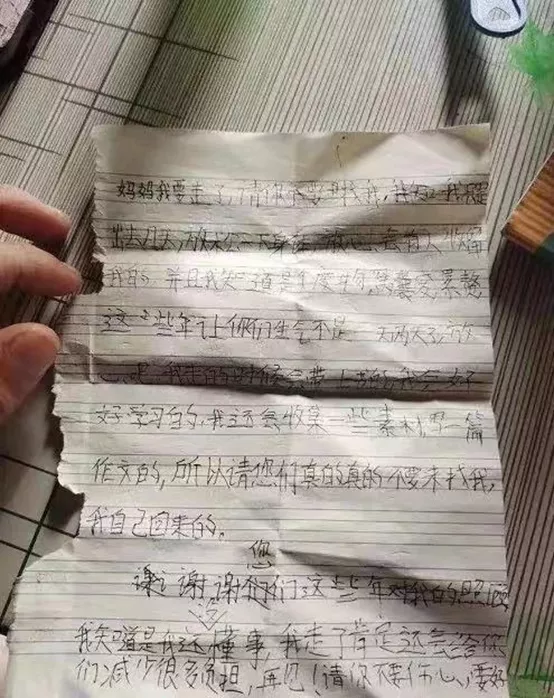 妈妈我要走了,请你不要来找我,我
出去几天,放松一下身
我的,并且我知道是个废物,累
这些年让你们生气不是一天两天了,放
心吧,我走的时候会带上书的,我会好
好学习的,我还会收集一些素材,写一篇
作文的,所以请您们真的真的不要来找我,
我自己回来的。
谢谢谢您们这些年对我的照顾
我知道是我还懂事,我走了肯定还会给你
们减少很多负担,再见!请你不要伤心,要好